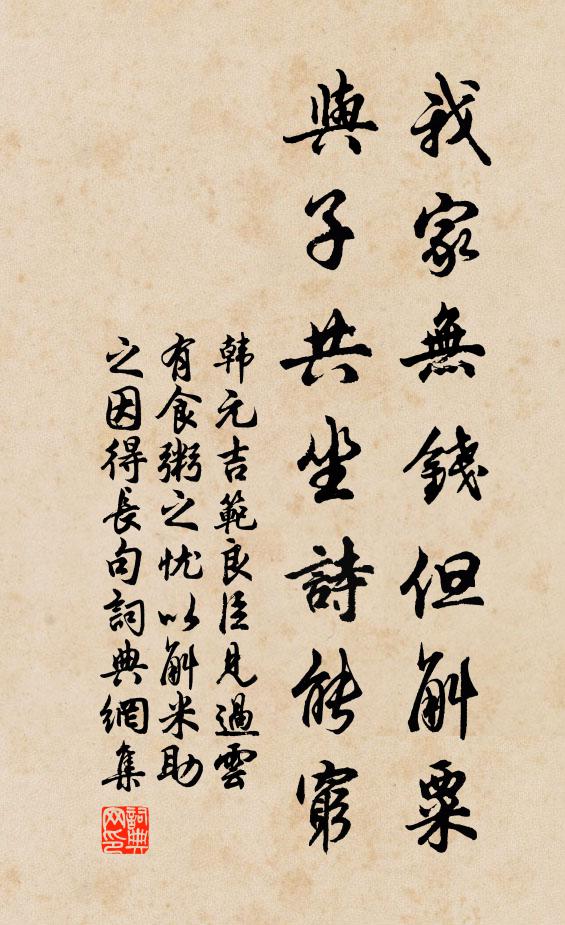 我家無錢但斛粟
與子共坐詩能窮
韩元吉範良臣見過雲
有食粥之忧以斛米助
之因得長句詞典網集
詞典
网印